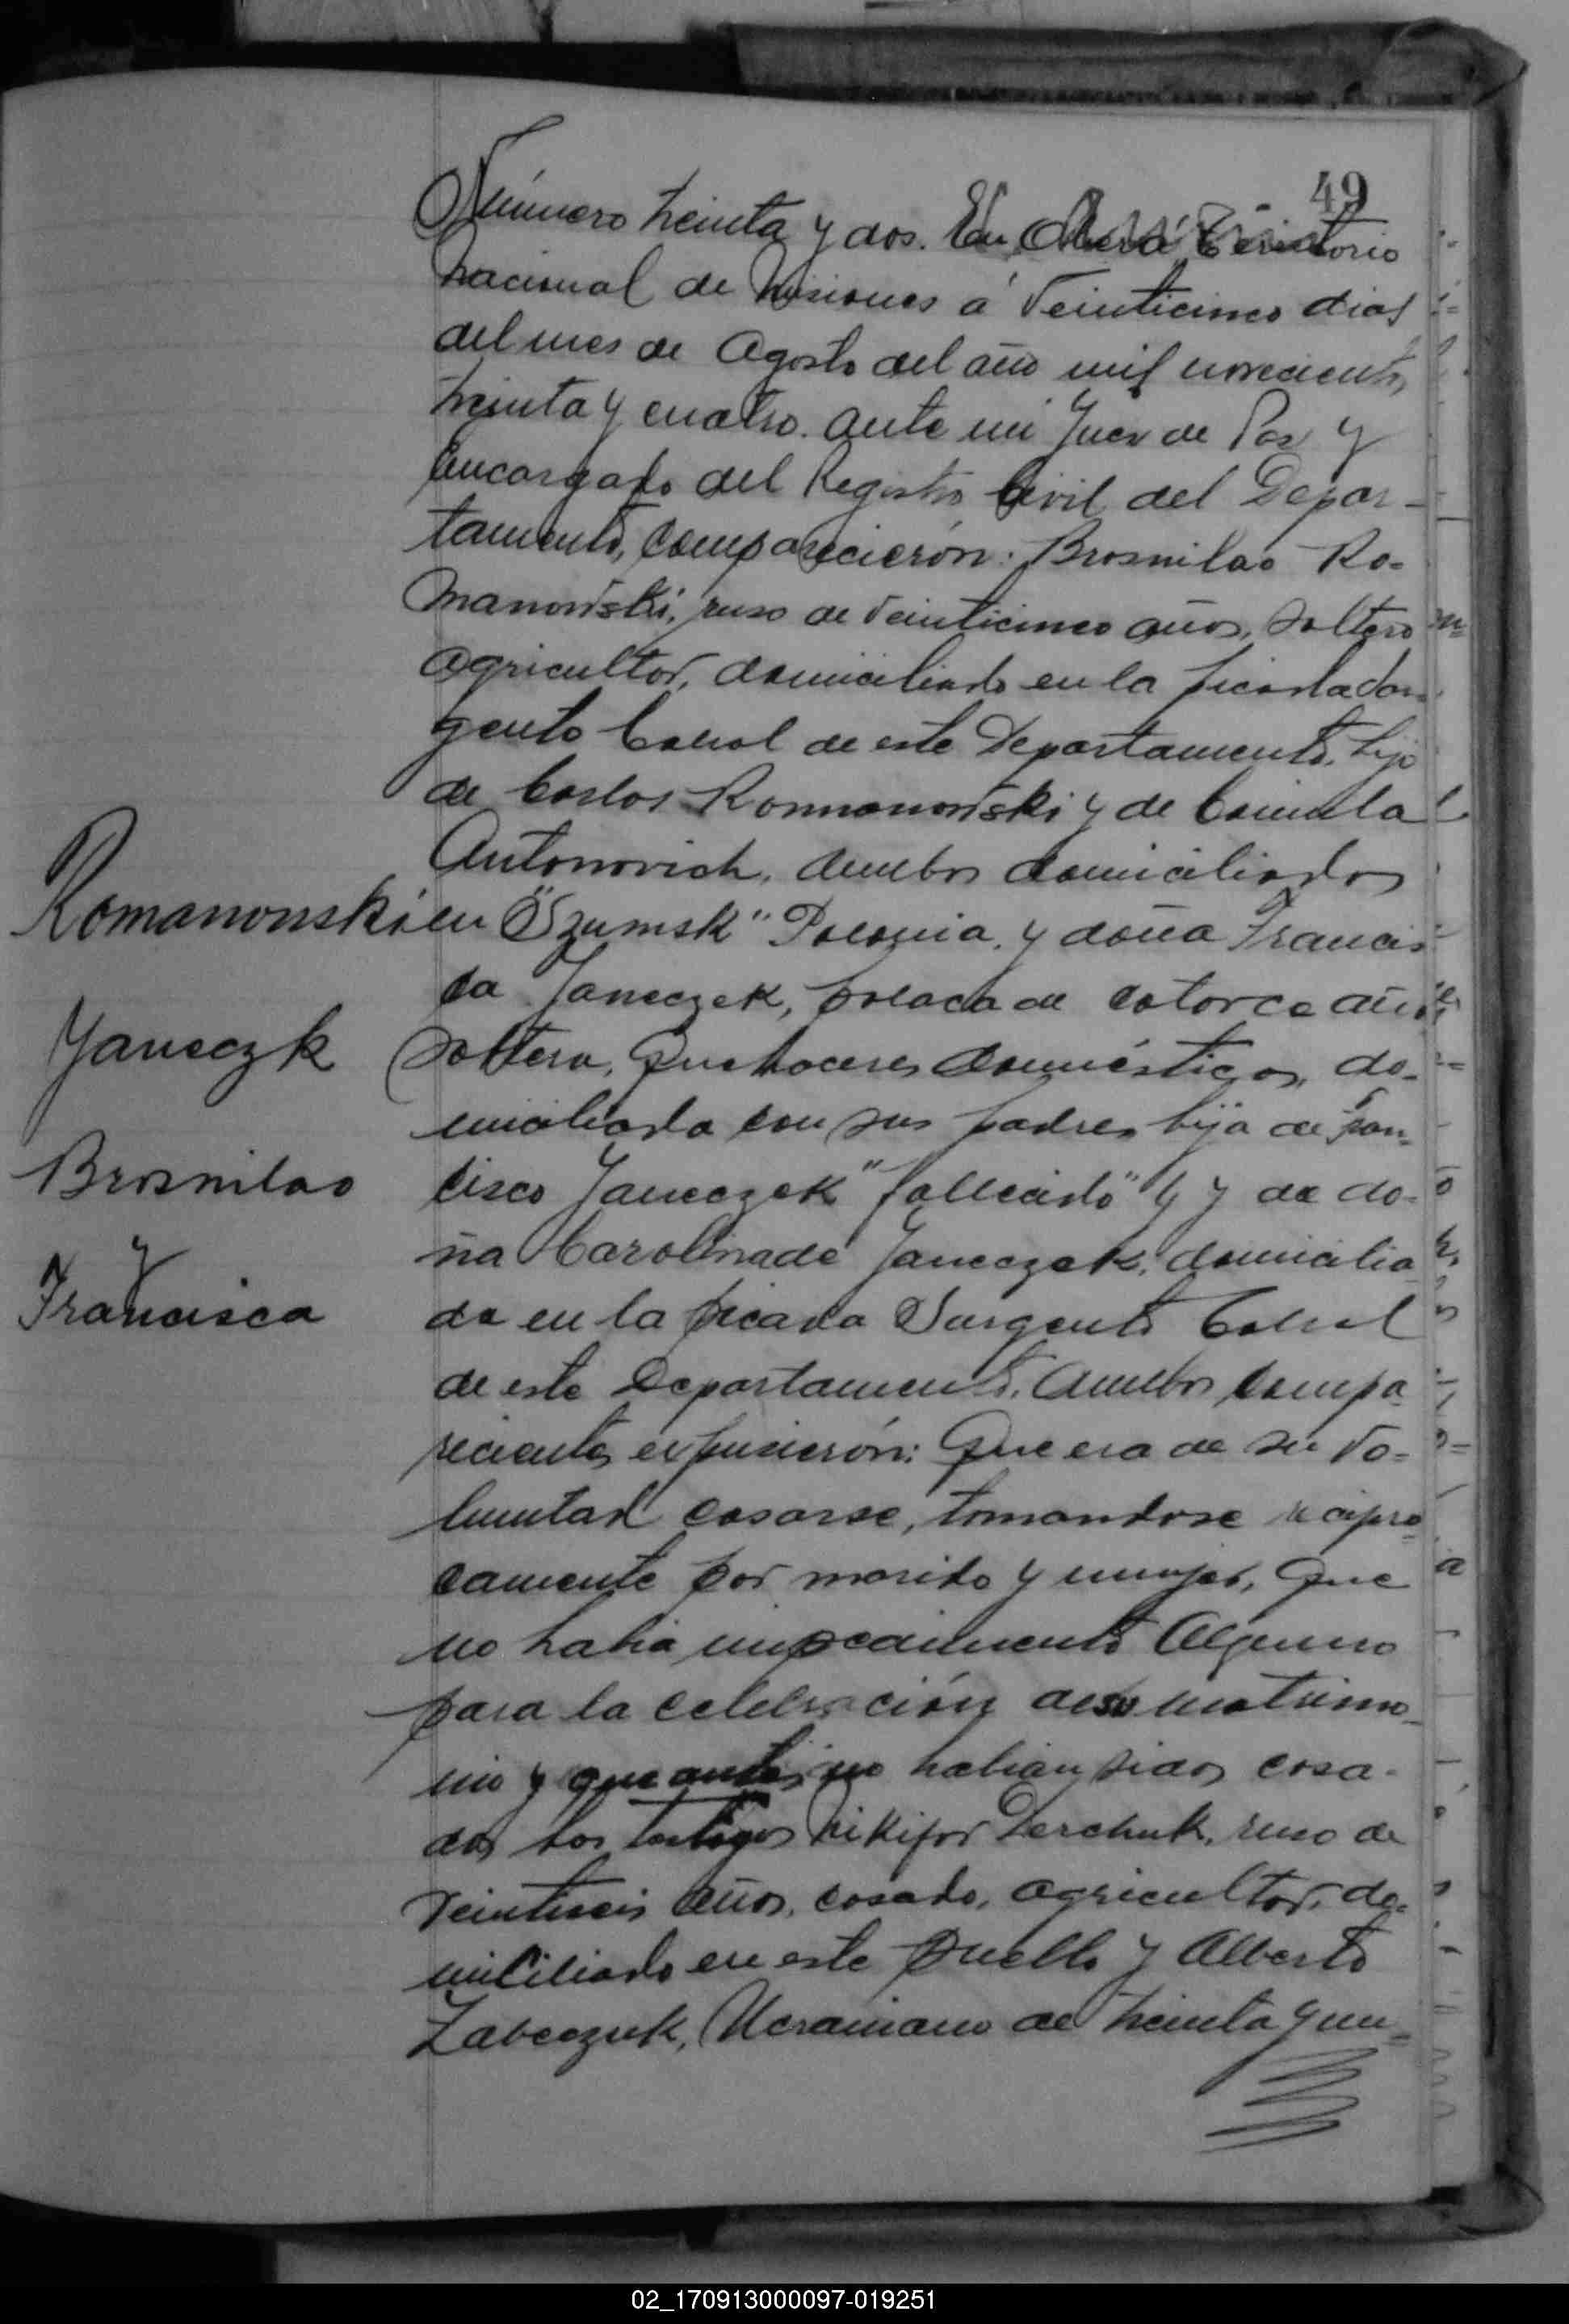 49
Número treinta y dos. En Oberá, Territorio
Nacional de Misiones á Veinticinco dias
del mes de Agosto del año mil novecientos
treinta y cuatro. ante mi Juez de Paz y
Encargado del Registro Civil del Depar-
tamento, comparecierón: Brosnilao Ro-
manowski, ruso de Veinticinco años, soltero
agricultor, domiciliado en la picada Sar-
gento Cabral de este Departamento, hijo
de Carlos Rommanowski y de Camila
Antonovich, ambos domiciliados
en "Szumsk" Polonia, y doña Francis
ca Janeczek, polaca de catorce años
soltera, Quehaceres domésticos, do-
miciliada con sus padres hija de Fran-
cisco Janeczek "fallecido" y de do-
ña Carolina de Janeczek, domicilia
da en la picada Sargento Cabral
de este Departamento. Ambos compa
recientes expusierón: Que era de su Vo-
luntad casarse, tomandose recipro-
camente por marido y mujer, Que
no habia impedimento Alguno
para la celebración de su matrimo-
nio y que antes no habian sidos casa-
dos Los testigos Nikifor Derchuk, ruso de
Veintiseis años, casado, agricultor, do-
miciliado en este Pueblo y Alberto
Zabczuk, Ucraniano de treinta y un
Romanowski
Janeczk
Brosnilao
y
Francisca
02_170913000097-019251